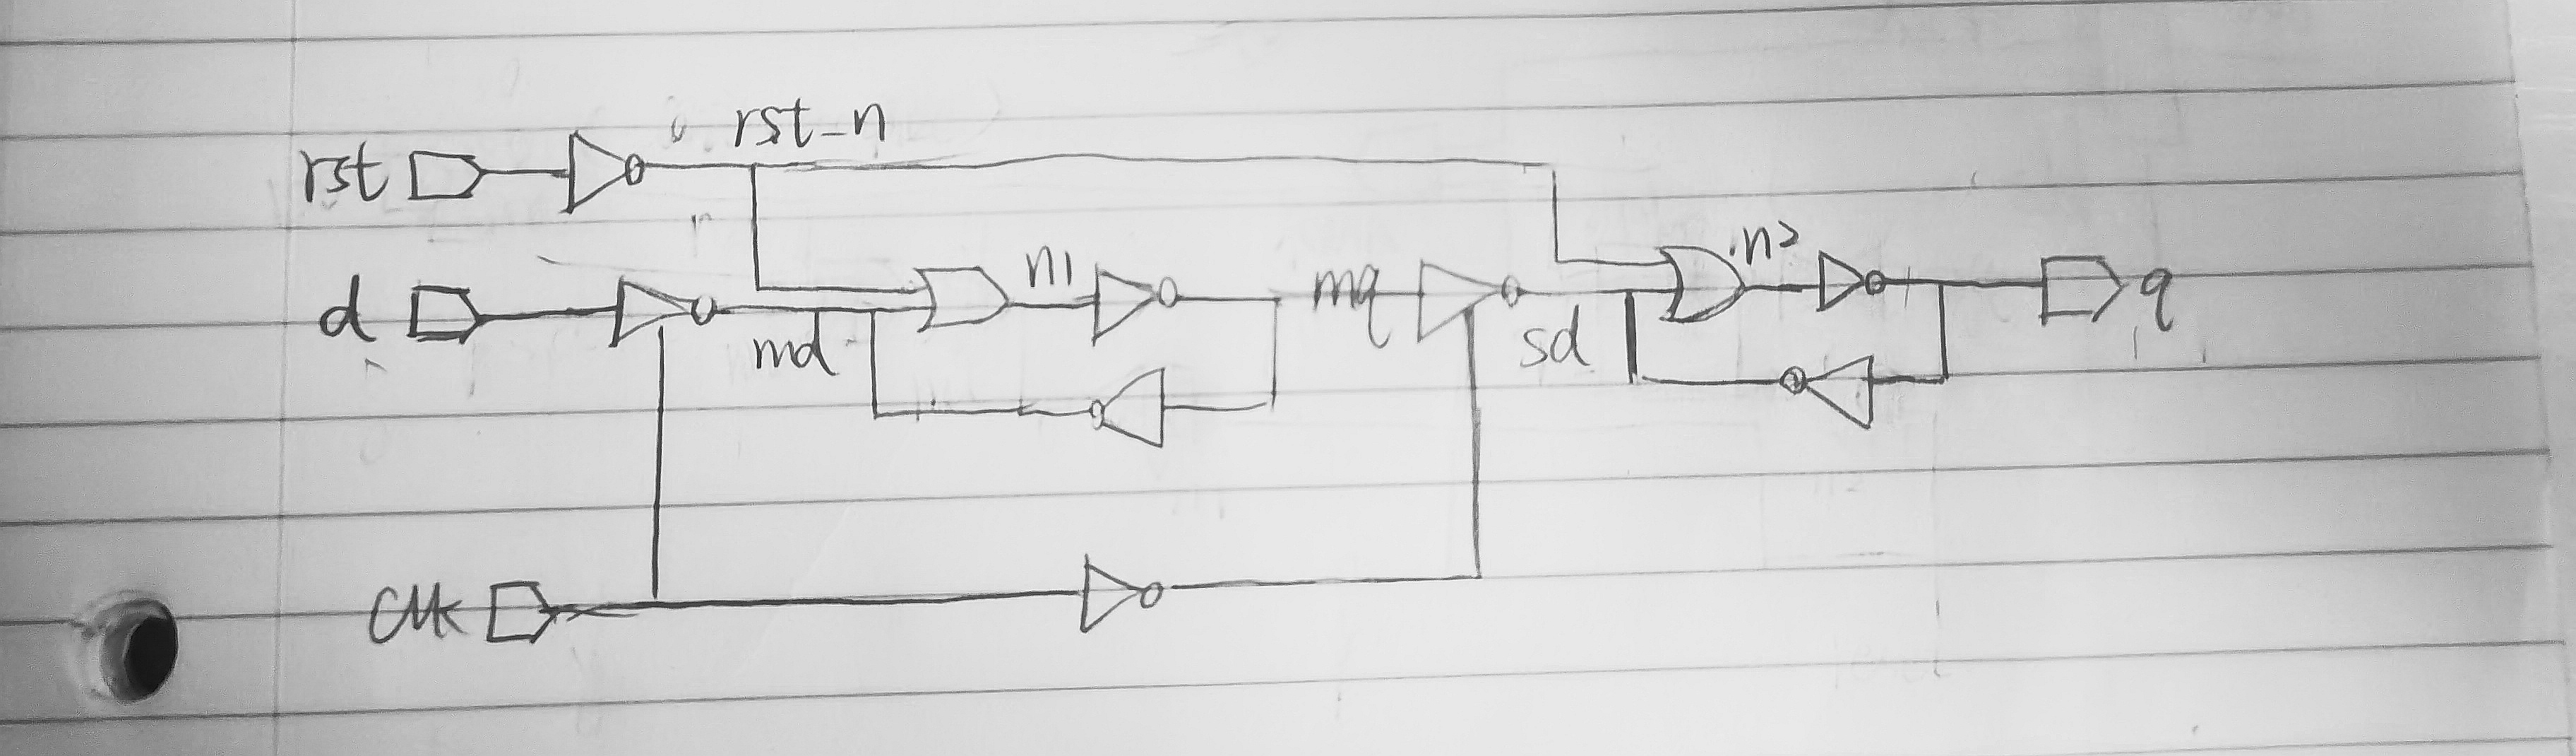 rst rst_n
d md n1 mq sd n2 q
clk